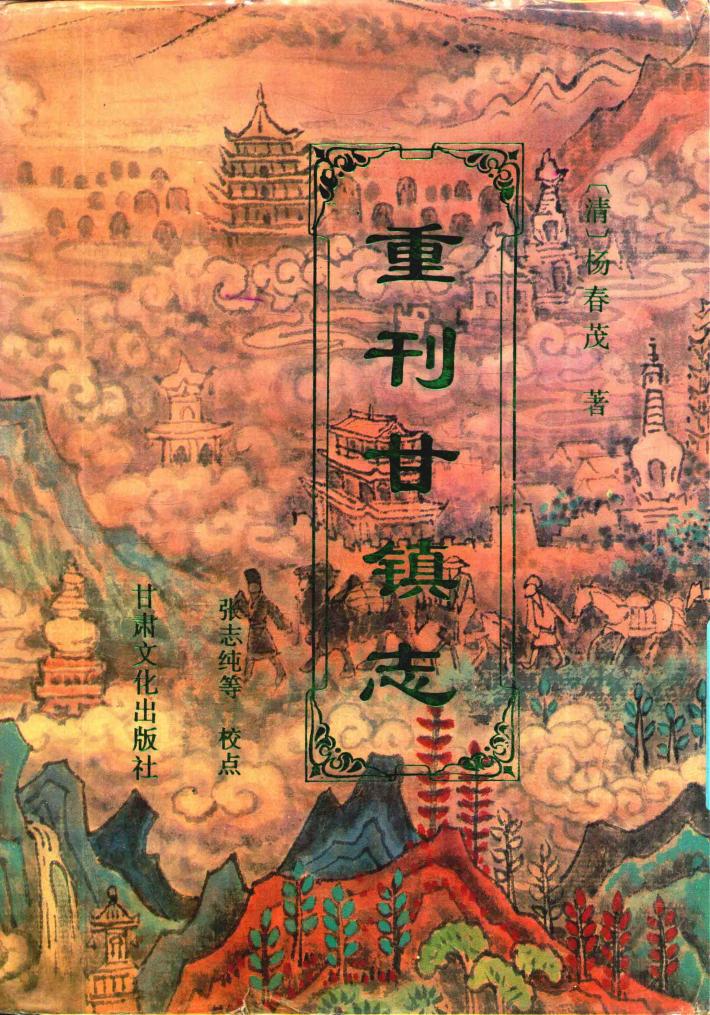 〔清〕杨春茂 著
重刊甘镇志
张志纯等 校点
甘肃文化出版社